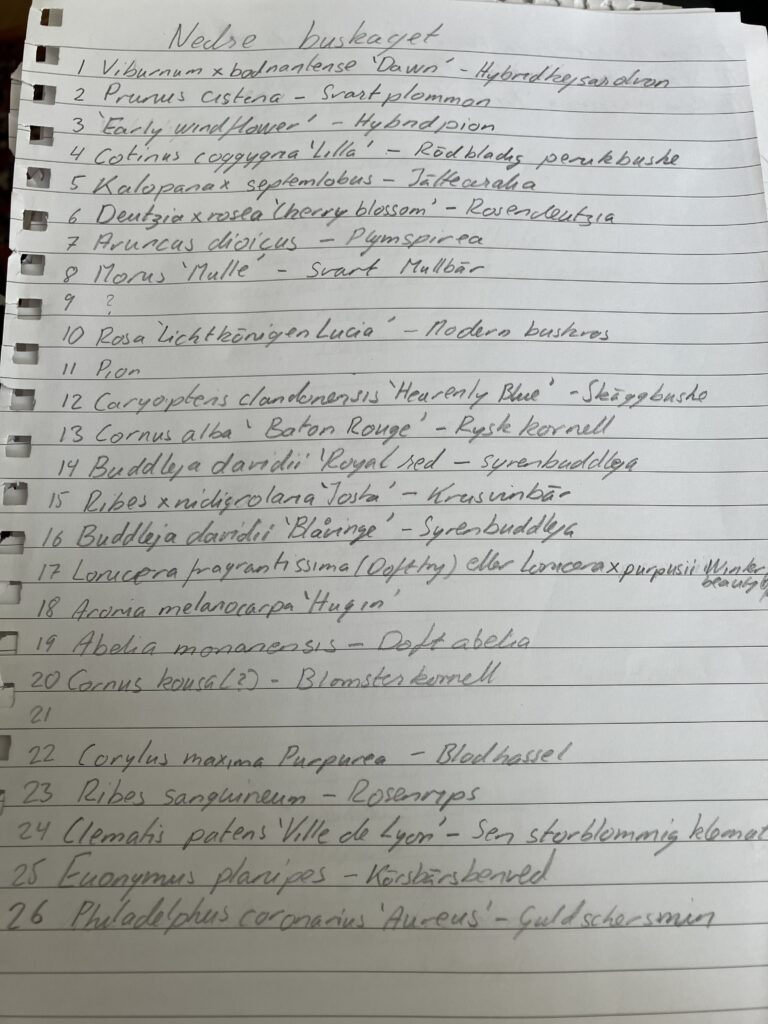 Nedre buskaget
1 Viburnum x bodnantense 'Dawn' - Hybridkejsarolvon
2 Prunus cistena - Svartplommon
3 'Early windflower' - Hybridpion
4 Cotinus coggygria 'Lilla' - Rödbladig perukbuske
5 Kalopanax septemlobus - Jättearalia
6 Deutzia x rosea 'Cherry blossom' - Rosendeutzia
7 Aruncus dioicus - Plymspirea
8 Morus 'Mulle' - Svart Mullbär
9 ?
10 Rosa 'Lichtkönigen Lucia' - Modern buskros
11 Pion
12 Caryopteris clandonensis 'Heavenly Blue' - Skäggbuske
13 Cornus alba 'Baton Rouge' - Rysk kornell
14 Buddleja davidii 'Royal red - syrenbuddleja
15 Ribes x nidigrolaria 'Josta' - Krusvinbär
16 Buddleja davidii 'Blåvinge' - Syrenbuddleja
17 Lonicera fragrantissima (Dofttry) eller Lonicera x purpusii 'Winter
beauty'
18 Aronia melanocarpa 'Hugin'
19 Abelia monanensis - Doftabelia
20 Cornus kousa (?) - Blomsterkornell
21
22 Corylus maxima Purpurea - Blodhassel
23 Ribes sanguineum - Rosenrips
24 Clematis patens 'Ville de Lyon' - Sen storblommig klemat
25 Euonymus planipes - Körsbärsbenved
26 Philadelphus coronarius 'Aureus' - Guldschersmin